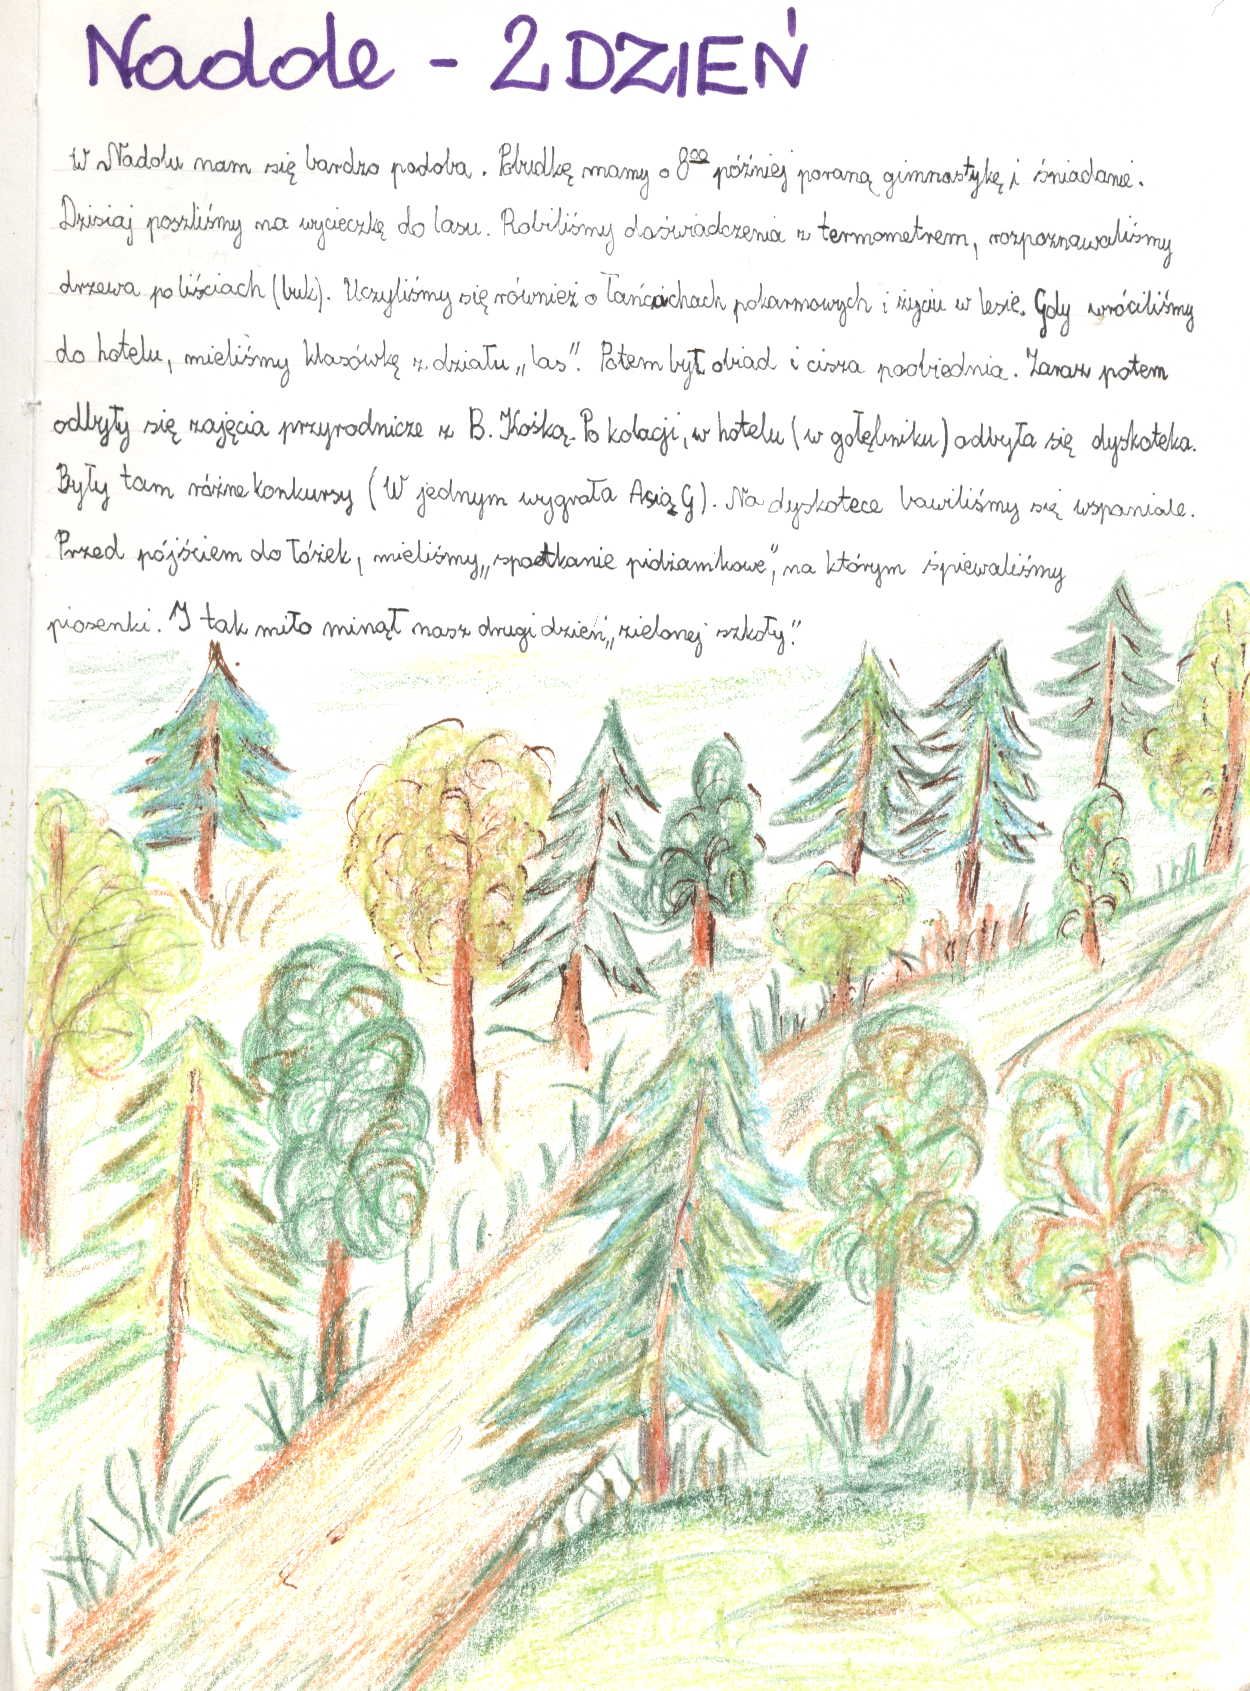 Nadole - 2 DZIEŃ
W Nadolu nam się bardzo podoba. Pobudkę mamy o 8⁰⁰ później poraną gimnastykę i śniadanie.
Dzisiaj poszliśmy na wycieczkę do lasu. Robiliśmy doświadczenia z termometrem, rozpoznawaliśmy
drzewa po liściach (buk). Uczyliśmy się również o łańcuchach pokarmowych i życiu w lesie. Gdy wróciliśmy
do hotelu, mieliśmy klasówkę z działu „las”. Potem był obiad i cisza poobiednia. Zaraz potem
odbyły się zajęcia przyrodnicze z B. Kośką. Po kolacji, w hotelu (w gołębniku) odbyła się dyskoteka.
Były tam różne konkursy (W jednym wygrała Asia G). Na dyskotece bawiliśmy się wspaniale.
Przed pójściem do łóżek, mieliśmy „spotkanie pidżamkowe”, na którym śpiewaliśmy
piosenki. I tak miło minął nasz drugi dzień „zielonej szkoły”.